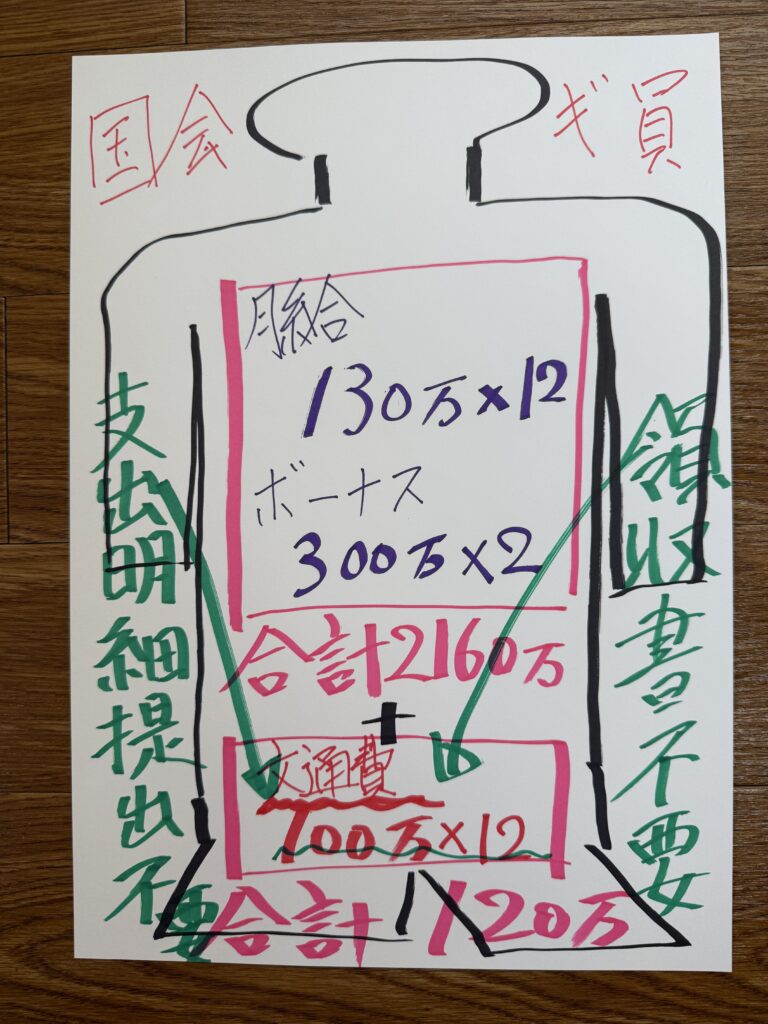 国会ギ員
月給
130万×12
ボーナス
300万×2
合計2160万
+
交通費
100万×12
合計120万
支出明細提出不要
領収書不要